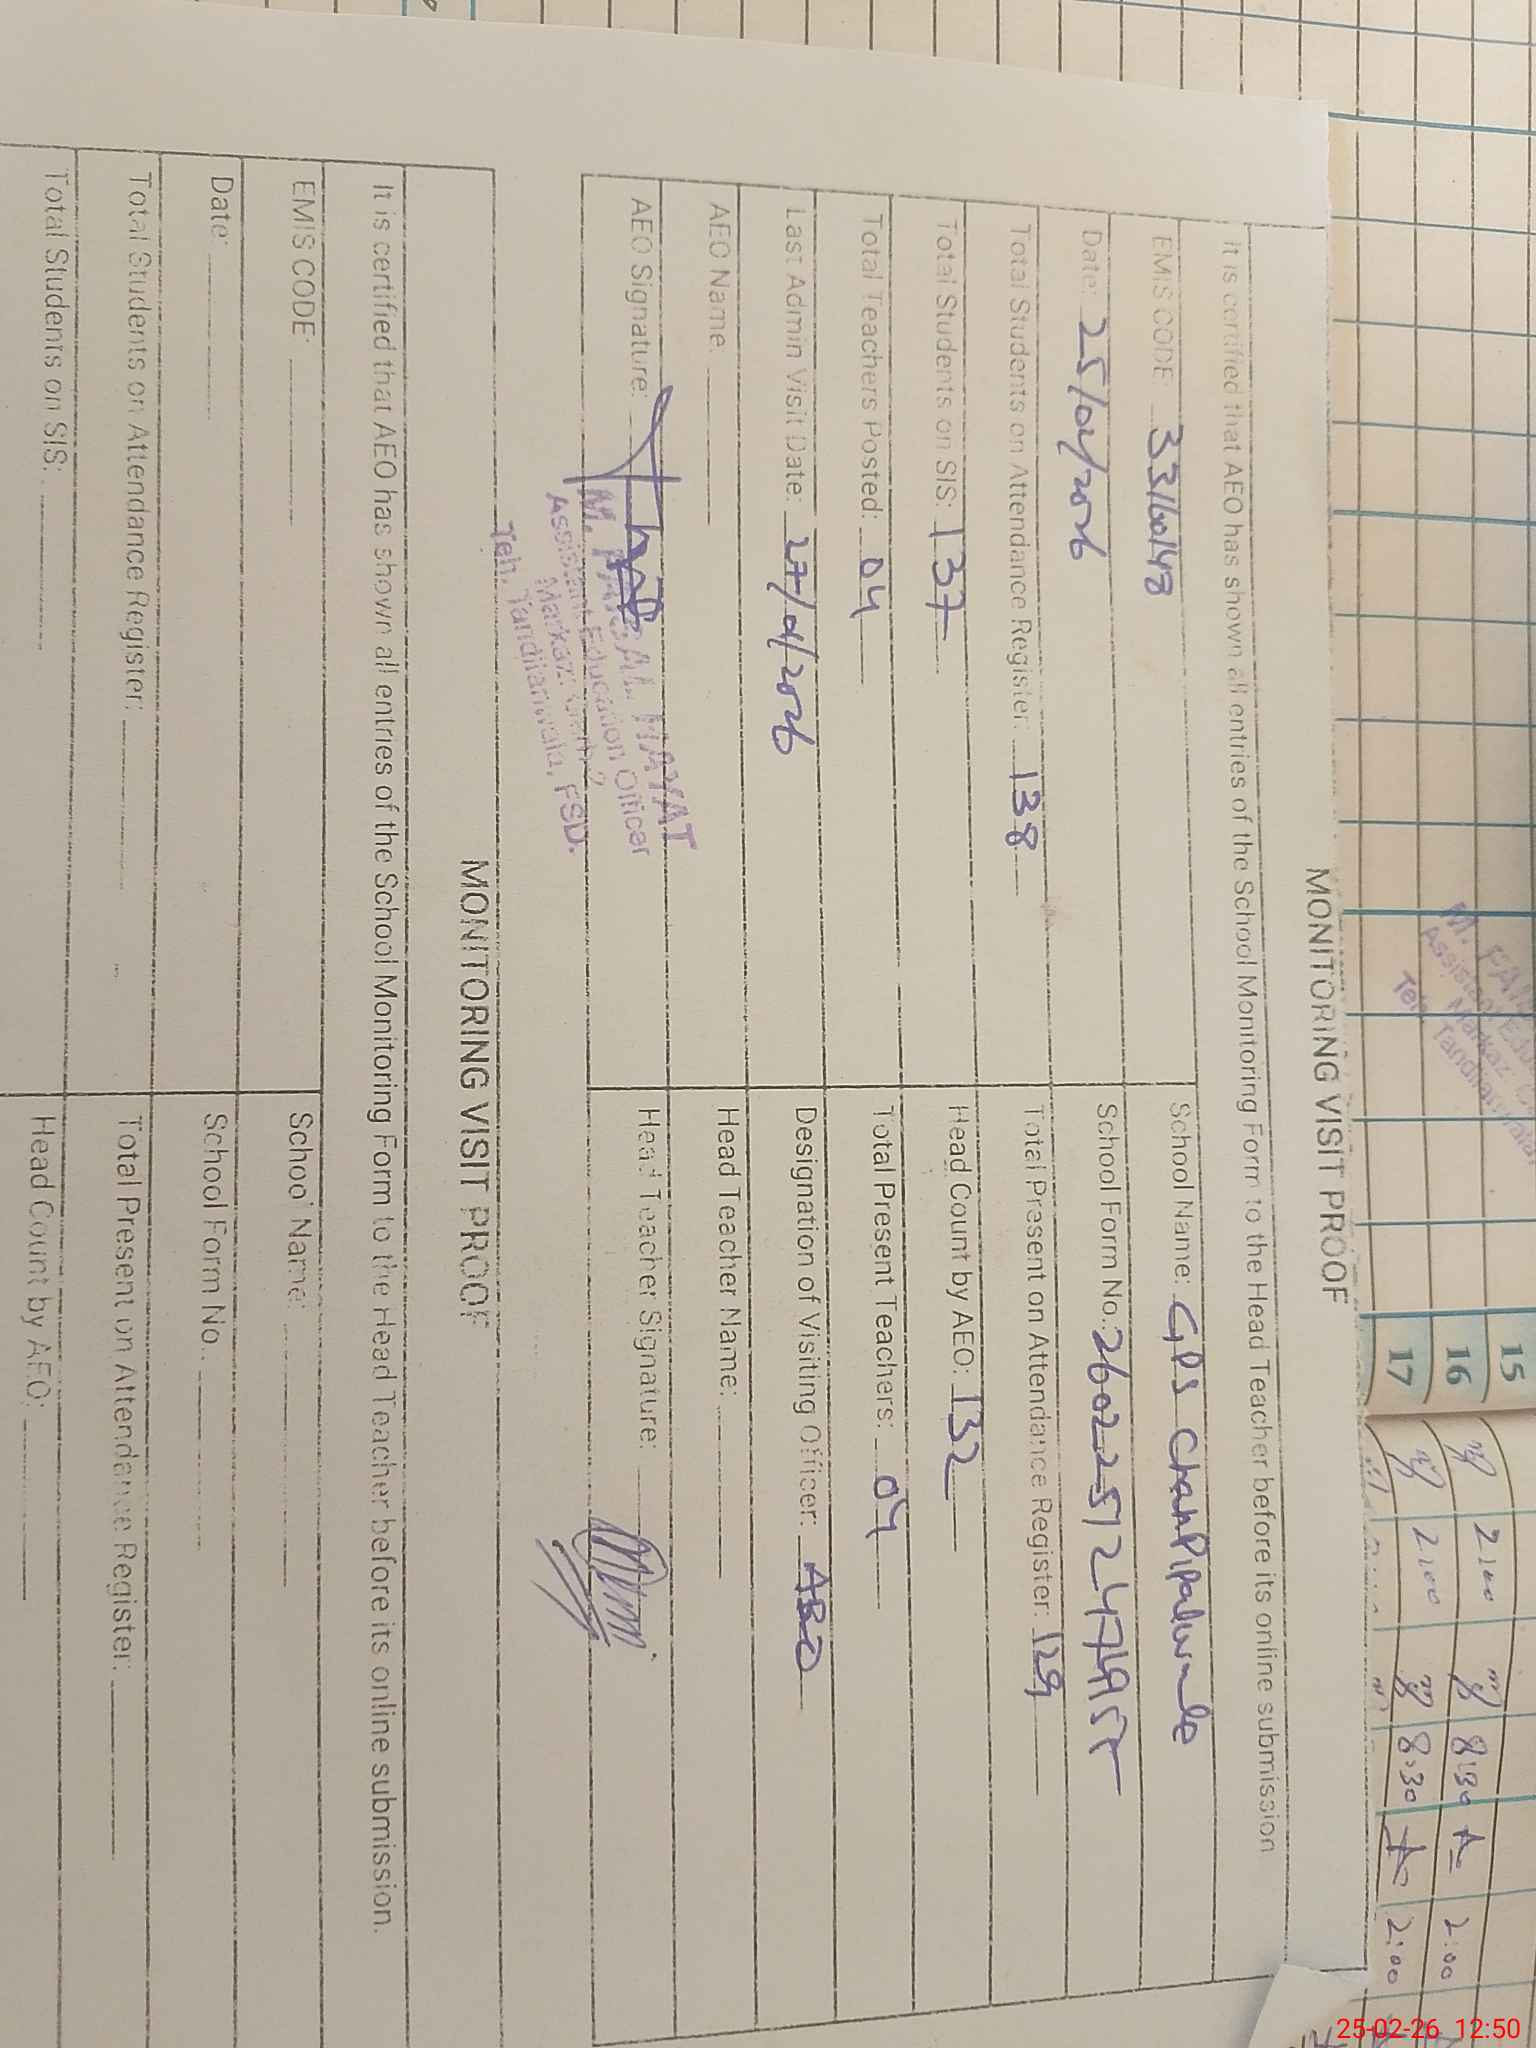 MONITORING VISIT PROOF
It is certified that AEO has shown all entries of the School Monitoring Form to the Head Teacher before its online submission
EMIS CODE: 33160148 School Name: GPS
Date: 25/02/2026 School Form No.:
Total Students on Attendance Register: 138 Total Present on Attendance Register: 129
Total Students on SIS: 137 Head Count by AEO: 132
Total Teachers Posted: 04 Total Present Teachers: 04
Last Admin Visit Date: 27/01/2026 Designation of Visiting Officer: AEO
AEO Name: Head Teacher Name:
AEO Signature: Head Teacher Signature:
HAYAT
Assistant Education Officer
Markaz
Teh. Tandlianwala, FSD.
MONITORING VISIT PROOF
It is certified that AEO has shown all entries of the School Monitoring Form to the Head Teacher before its online submission.
EMIS CODE: School Name:
Date: School Form No.
Total Students on Attendance Register: Total Present on Attendance Register:
Total Students on SIS: Head Count by AEO:
15
16 2:00 8:30 2:00
17 2:00 8:30 2:00
25-02-26 12:50